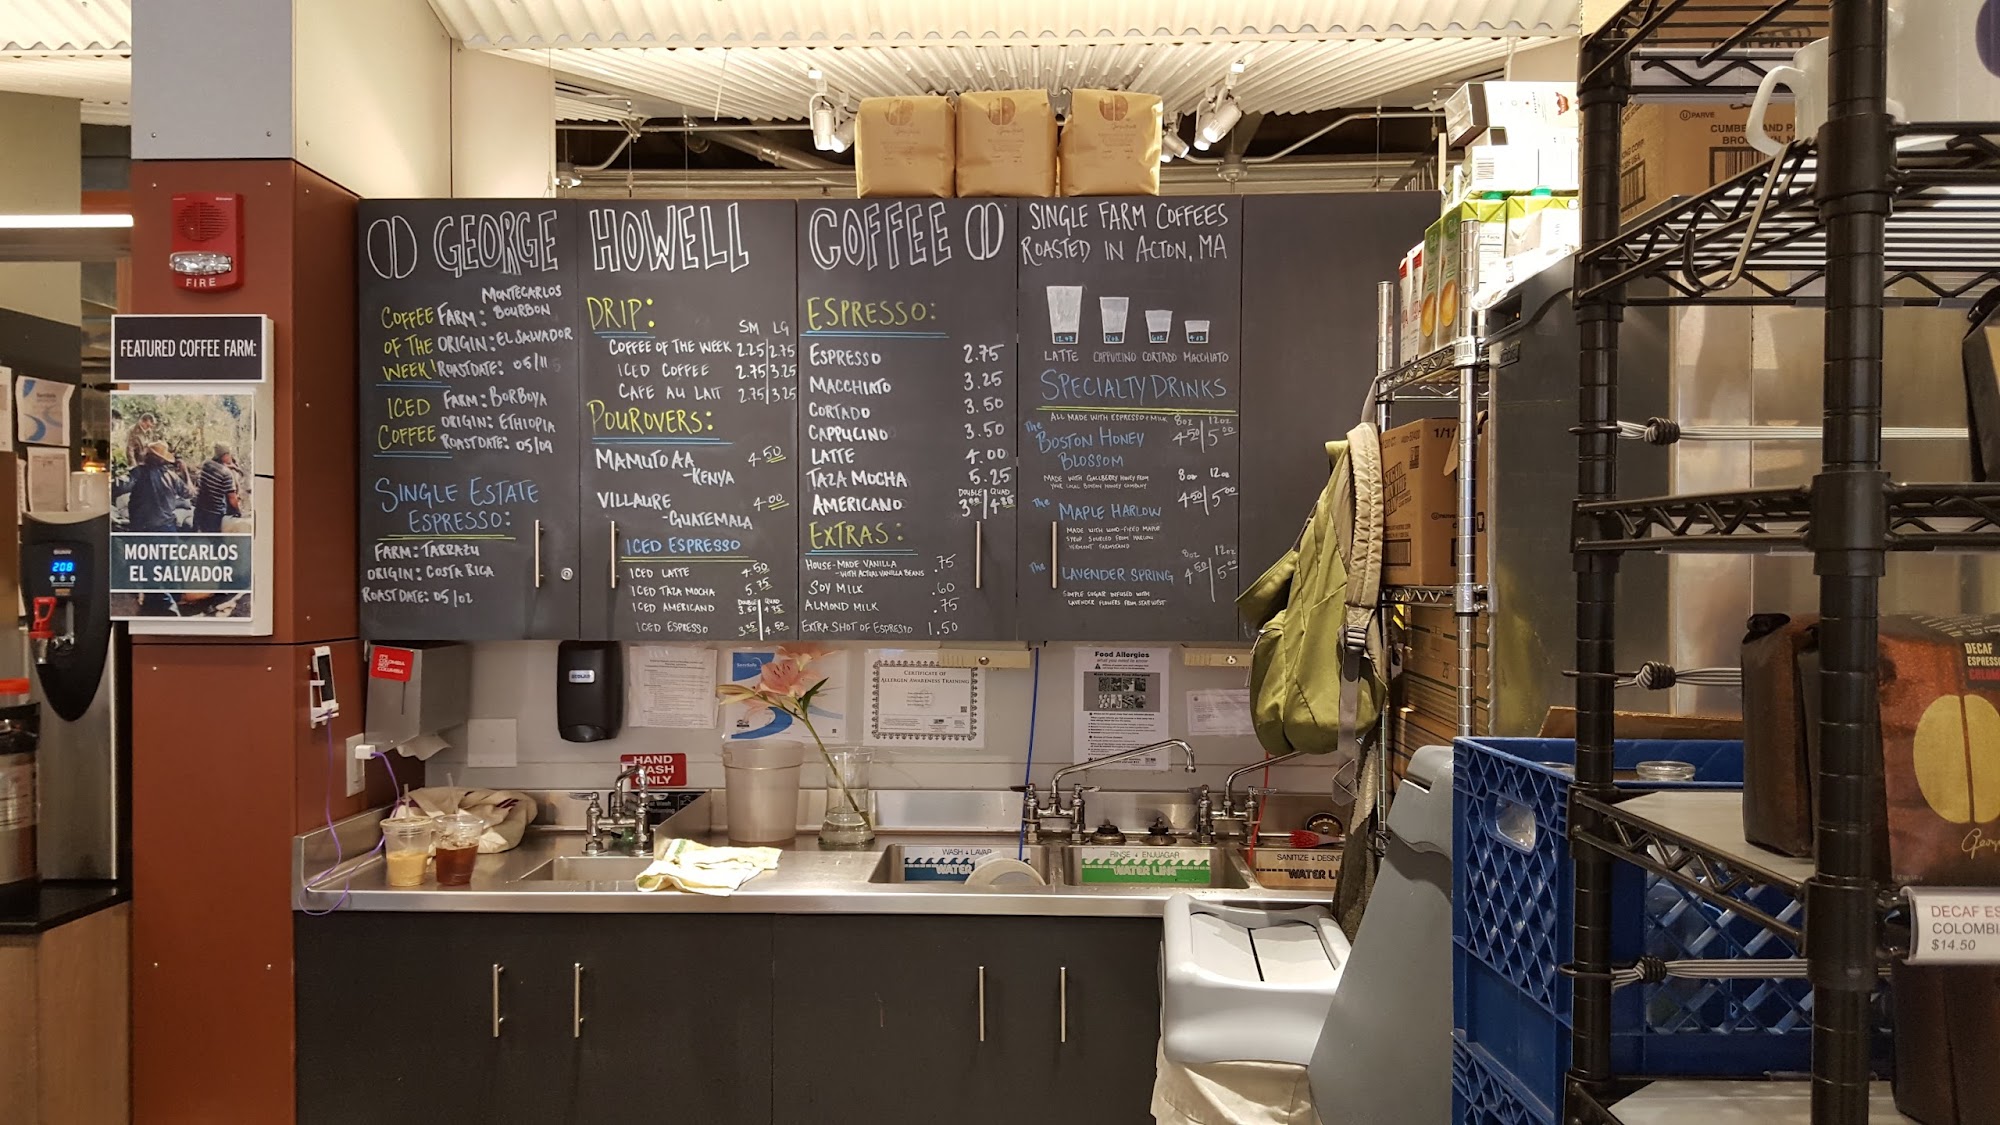 GEORGE HOWELL COFFEE
SINGLE FARM COFFEES
ROASTED IN ACTON, MA
COFFEE OF THE WEEK!
FARM: MONTECARLOS BOURBON
ORIGIN: EL SALVADOR
ROAST DATE: 05/11
ICED COFFEE
FARM: BORBOYA
ORIGIN: ETHIOPIA
ROAST DATE: 05/09
SINGLE ESTATE
ESPRESSO:
FARM: TARRAZU
ORIGIN: COSTA RICA
ROAST DATE: 05/02
DRIP:
SM LG
COFFEE OF THE WEEK 2.25 2.75
ICED COFFEE 2.75 3.25
CAFE AU LAIT 2.75 3.25
POUROVERS:
MAMUTO AA 4.50
-KENYA
VILLAURE 4.00
-GUATEMALA
ICED ESPRESSO
ICED LATTE 4.50
ICED TAZA MOCHA 5.75
DOUBLE QUAD
ICED AMERICANO 3.50 4.75
ICED ESPRESSO 3.25 4.50
ESPRESSO:
ESPRESSO 2.75
MACCHIATO 3.25
CORTADO 3.50
CAPPUCINO 3.50
LATTE 4.00
TAZA MOCHA 5.25
DOUBLE QUAD
AMERICANO 3.00 4.25
EXTRAS:
HOUSE-MADE VANILLA .75
-WITH ACTUAL VANILLA BEANS
SOY MILK .60
ALMOND MILK .75
EXTRA SHOT OF ESPRESSO 1.50
12 OZ 8 OZ 6 OZ 4 OZ
LATTE CAPPUCINO CORTADO MACCHIATO
SPECIALTY DRINKS
ALL MADE WITH ESPRESSO + MILK 8oz 12oz
The BOSTON HONEY 4.50 5.00
BLOSSOM
MADE WITH GALLBERRY HONEY FROM
YOUR LOCAL BOSTON HONEY COMPANY
8oz 12oz
The MAPLE HARLOW 4.50 5.00
MADE WITH WOOD-FIRED MAPLE
SYRUP SOURCED FROM HARLOW
VERMONT FARMSTEAD
8oz 12oz
The LAVENDER SPRING 4.50 5.00
SIMPLE SUGAR INFUSED WITH
FIRE
FEATURED COFFEE FARM:
MONTECARLOS
EL SALVADOR
208
IT'S
COLOMBIA
NOT
COLUMBIA
HAND
WASH
ONLY
ServSafe
CERTIFICATE OF
ALLERGEN AWARENESS TRAINING
Food Allergies
what you need to know
WASH + LAVAR
WATER LINE
RINSE + ENJUAGAR
WATER LINE
SANITIZE + DESINF
WATER LI
PARVE
CUMBERLAND PA
DECAF
ESPRESSO
DECAF ES
COLOMBI
$14.50